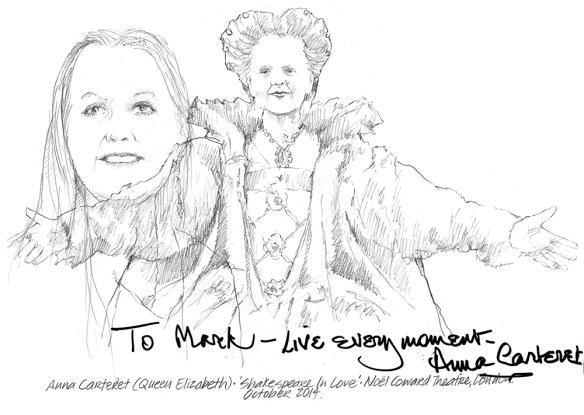 To Mark – Live every moment –
Anna Carteret
Anna Carteret (Queen Elizabeth) · 'Shakespeare In Love' · Noël Coward Theatre, London.
October 2014.